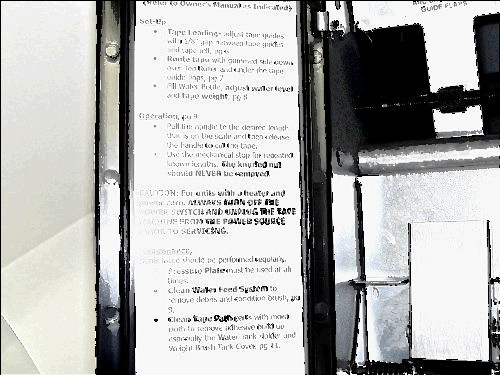 (Refer to Owner's Manual as Indicated)
GUIDE FLAPS
Set-Up
• Tape Loading- adjust tape guides
with 1/8" gap between tape guides
and tape roll, pg 6
• Route tape with gummed side down
over Top Roller and under the tape
guide flaps, pg 7
• Fill Water Bottle, adjust water level
and tape weight, pg 8
Operation, pg 9
• Pull the handle to the desired length
that is on the scale and then release
the handle to cut the tape.
• Use the mechanical stop for repeated
known lengths. The knurled nut
should NEVER be removed.
CAUTION: For units with a heater and
power cord, ALWAYS TURN OFF THE
POWER SWITCH AND UNPLUG THE TAPE
MACHINE FROM THE POWER SOURCE
PRIOR TO SERVICING.
Maintenance,
should be performed regularly.
Pressure Plate must be used at all
times.
• Clean Water Feed System to
remove debris and condition brush, pg
9.
• Clean Tape Path parts with moist
cloth to remove adhesive build up
especially the Water Tank Holder and
Weight Brush Tank Cover, pg 11.